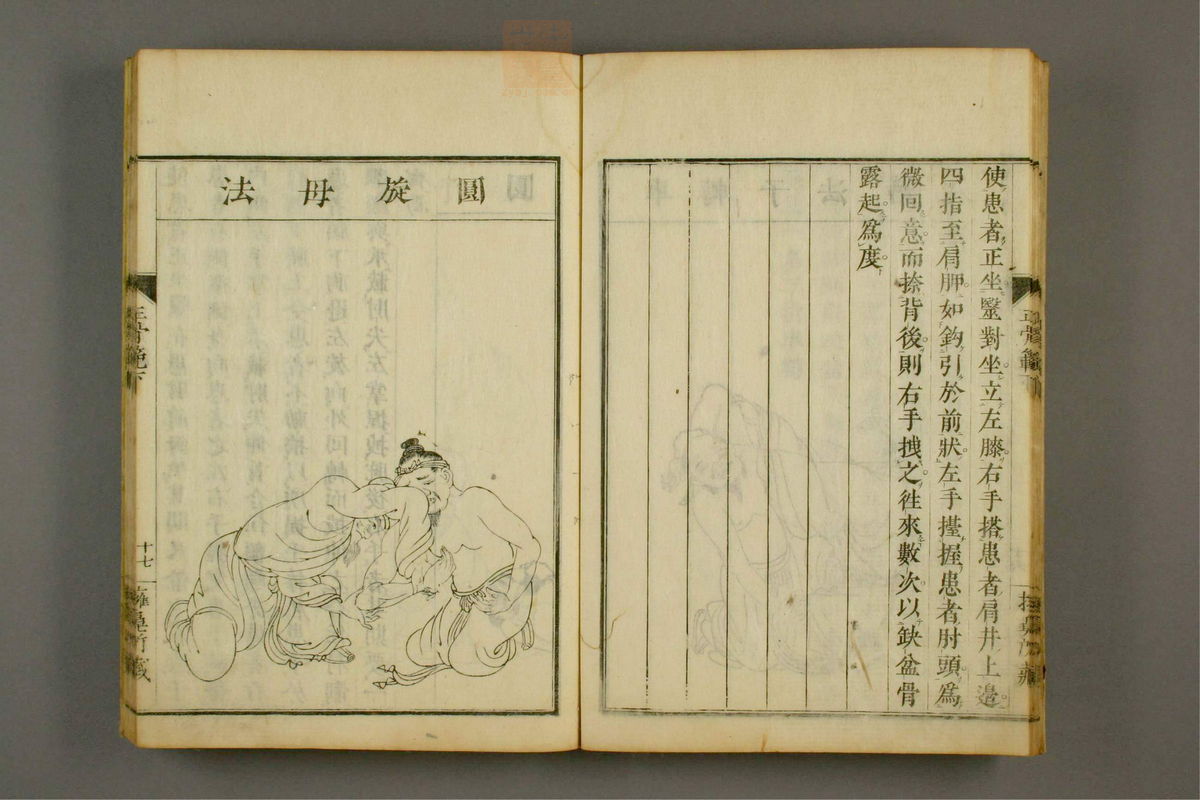 使患者正坐毉對坐立左膝右手搭患者肩井上邉
四指至肩胛如鈎引於前狀左手擡握患者肘頭爲
微回意而捺背後則右手拽之徃來數次以缺盆骨
露起爲度
圓旋母法
正骨範下
十七